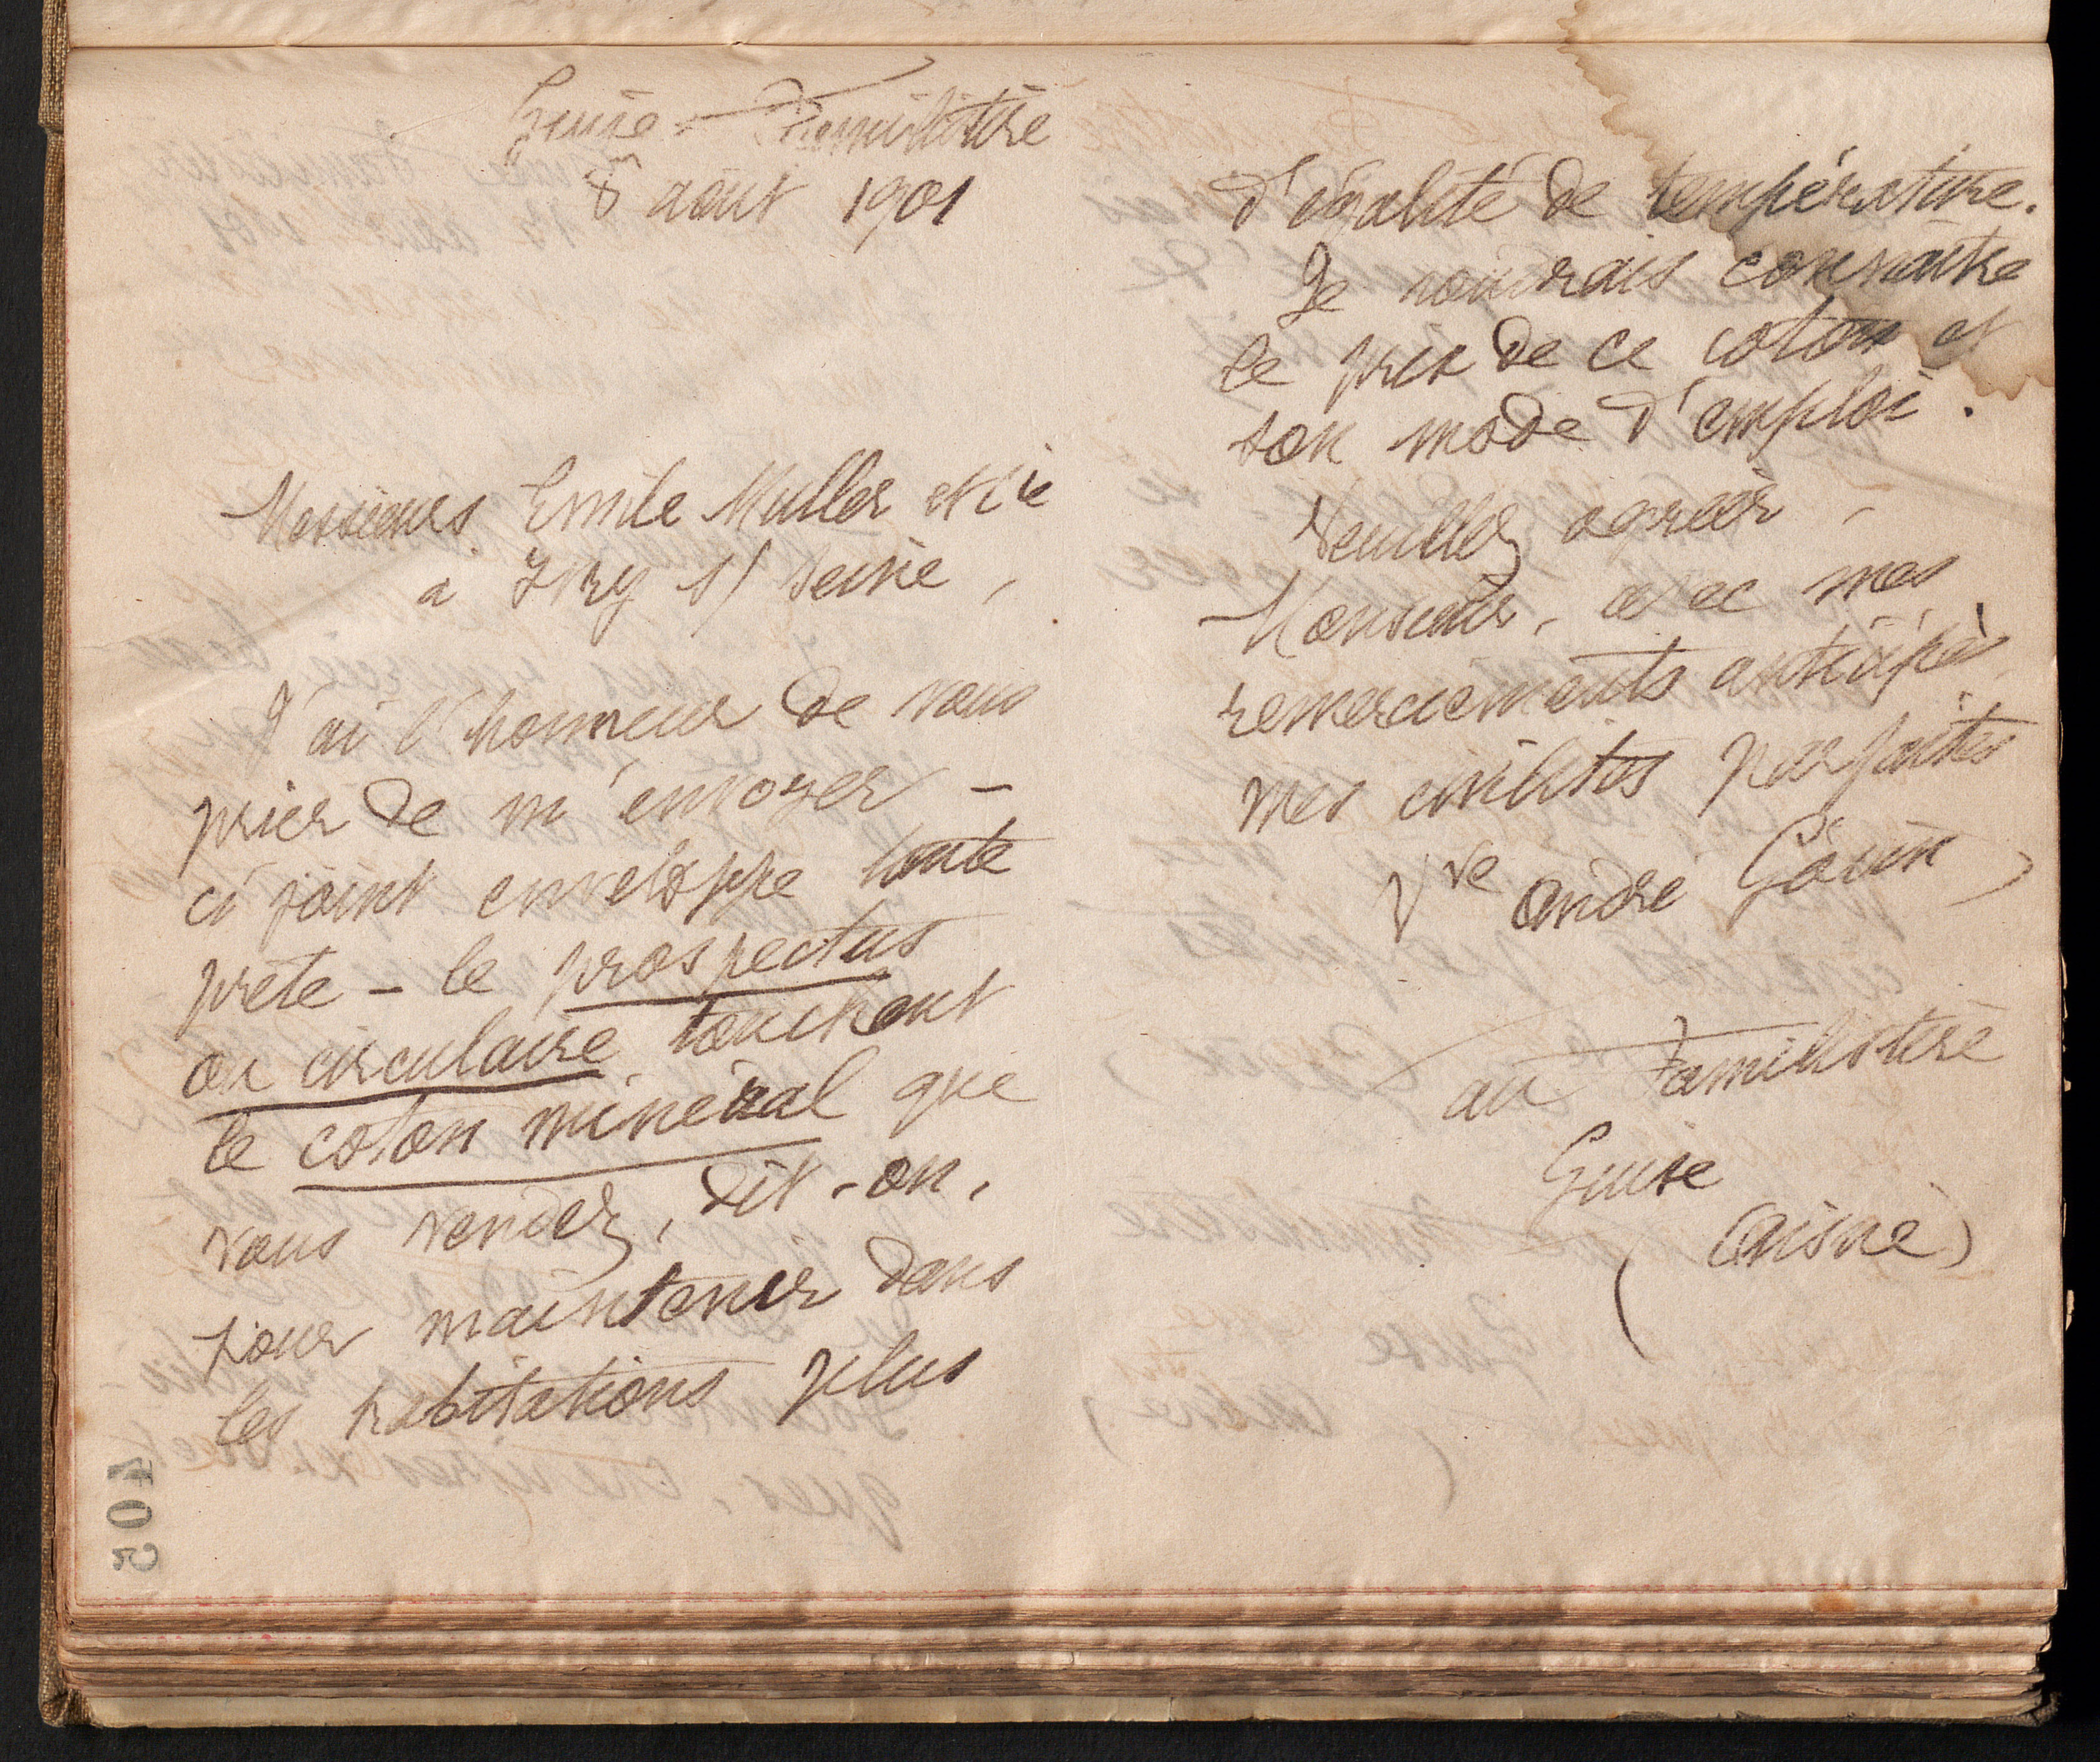 Guise - Familistère
8 août 1901
Messieurs Emile Muller et Cie
a Ivry s/ Seine,
J'ai l'honneur de vous
prier de m'envoyer -
ci joint enveloppe toute
prête - le prospectus
ou circulaire touchant
le coton minéral que
vous vendez, dit-on,
pour maintenir dans
les habitations plus
d'égalité de température.
Je voudrais connaître
le prix de ce coton et
son mode d'emploi.
Veuillez agréer,
Monsieur, avec mes
remerciements anticipés
mes civilités parfaites
Vve André Godin
au Familistère
Guise
(Aisne)
405